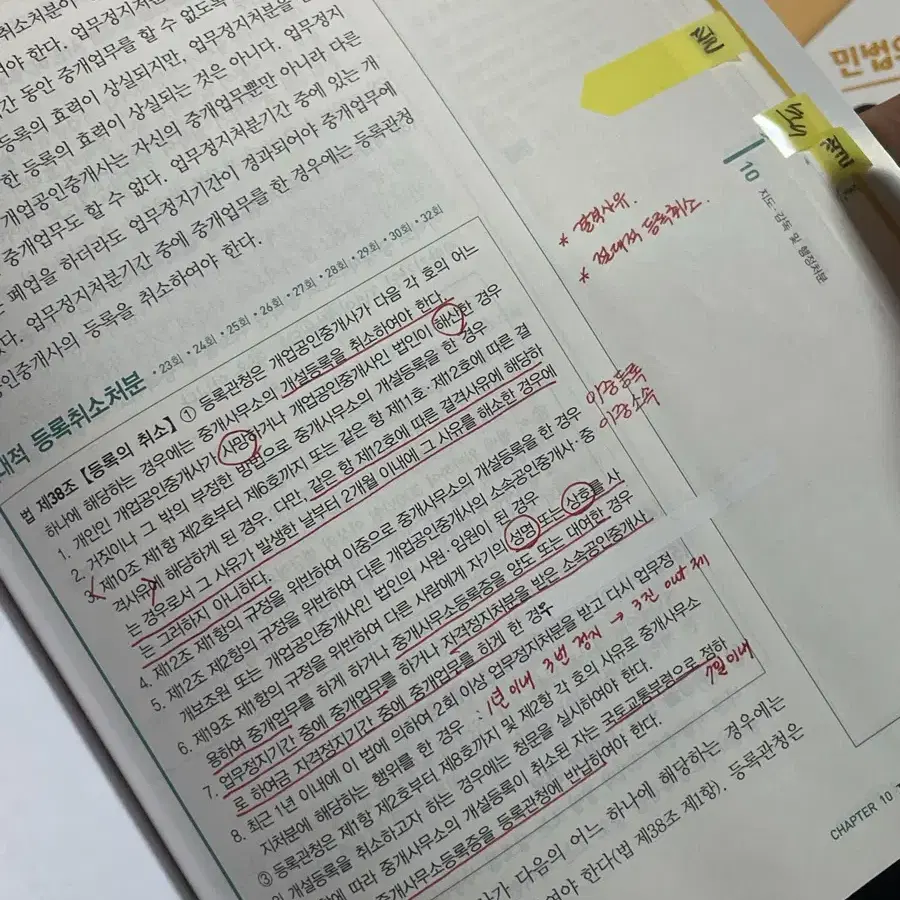 취소처분이
여야 한다. 업무정지처분
간 동안 중개업무를 할 수 없도록
등록의 효력이 상실되지만, 업무정지처분을
한 등록의 효력이 상실되는 것은 아니다. 업무정지
개업공인중개사는 자신의 중개업무뿐만 아니라 다른
중개업무도 할 수 없다. 업무정지처분기간 중에 있는 개
폐업을 하더라도 업무정지기간이 경과되어야 중개업무에
다. 업무정지처분기간 중에 중개업무를 한 경우에는 등록관청
인중개사의 등록을 취소하여야 한다.
대적 등록취소처분 • 23회 • 24회 • 25회 • 26회 • 27회 • 28회 • 29회 • 30회 • 32회
법 제38조 【등록의 취소】 ① 등록관청은 개업공인중개사가 다음 각 호의 어느
하나에 해당하는 경우에는 중개사무소의 개설등록을 취소하여야 한다.
1. 개인인 개업공인중개사가 사망하거나 개업공인중개사인 법인이 해산한 경우
2. 거짓이나 그 밖의 부정한 방법으로 중개사무소의 개설등록을 한 경우
3. 제10조 제1항 제2호부터 제6호까지 또는 같은 항 제11호·제12호에 따른 결
격사유에 해당하게 된 경우. 다만, 같은 항 제12호에 따른 결격사유에 해당하
는 경우로서 그 사유가 발생한 날부터 2개월 이내에 그 사유를 해소한 경우에
는 그러하지 아니하다.
4. 제12조 제1항의 규정을 위반하여 이중으로 중개사무소의 개설등록을 한 경우
5. 제12조 제2항의 규정을 위반하여 다른 개업공인중개사의 소속공인중개사·중
개보조원 또는 개업공인중개사인 법인의 사원·임원이 된 경우
6. 제19조 제1항의 규정을 위반하여 다른 사람에게 자기의 성명 또는 상호를 사
용하여 중개업무를 하게 하거나 중개사무소등록증을 양도 또는 대여한 경우
7. 업무정지기간 중에 중개업무를 하거나 자격정지처분을 받은 소속공인중개사
로 하여금 자격정지기간 중에 중개업무를 하게 한 경우
8. 최근 1년 이내에 이 법에 의하여 2회 이상 업무정지처분을 받고 다시 업무정
지처분에 해당하는 행위를 한 경우 : 1년 이내 3번 정지 → 3진 out 제
③ 등록관청은 제1항 제2호부터 제8호까지 및 제2항 각 호의 사유로 중개사무소
의 개설등록을 취소하고자 하는 경우에는 청문을 실시하여야 한다.
에 따라 중개사무소의 개설등록이 취소된 자는 국토교통부령으로 정하
중개사무소등록증을 등록관청에 반납하여야 한다. 7일 이내
가 다음의 어느 하나에 해당하는 경우에는
여야 한다(법 제38조 제1항). 등록관청은
* 결격사유.
* 절대적 등록취소.
이중등록
이중소속
10 지도·감독 및 행정처분
CHAPTER 10
민법